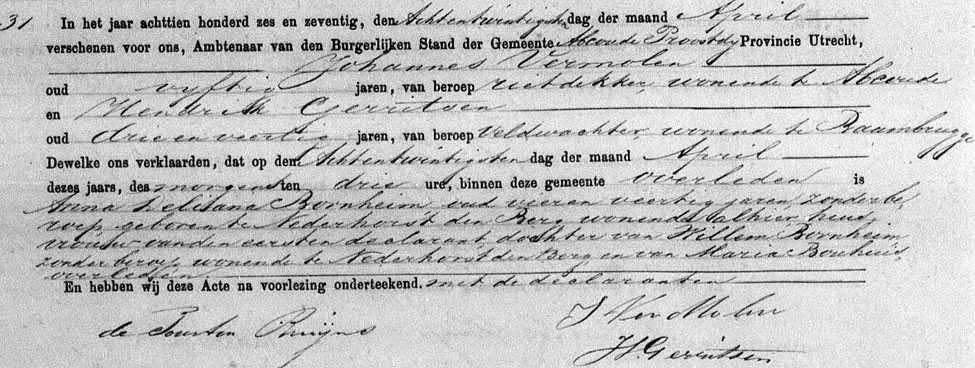 31. In het jaar achttien honderd zes en zeventig, den Achtentwintigsten dag der maand April
verschenen voor ons, Ambtenaar van den Burgerlijken Stand der Gemeente Abcoude Proostdij Provincie Utrecht,
Johannes Vermolen
oud vyftig jaren, van beroep rietdekker, wonende te Abcoude
en Hendrik Gerritsen
oud drie en veertig jaren, van beroep Veldwachter, wonende te Baambrugge
Dewelke ons verklaarden, dat op den Achtentwintigsten dag der maand April
dezes jaars, des morgens ten drie ure, binnen deze gemeente overleden is
Anna Bornheim oud vier en veertig jaren zonder be
roep geboren te Nederhorst den Berg wonende alhier huis
vrouw van den eersten declarant dochter van Willem Bornheim
zonder beroep, wonende te Nederhorst den Berg en van Maria
overleden.
En hebben wij deze Acte na voorlezing onderteekend. met de declaranten
de Ruijns J Ver Molen
H Gerritsen